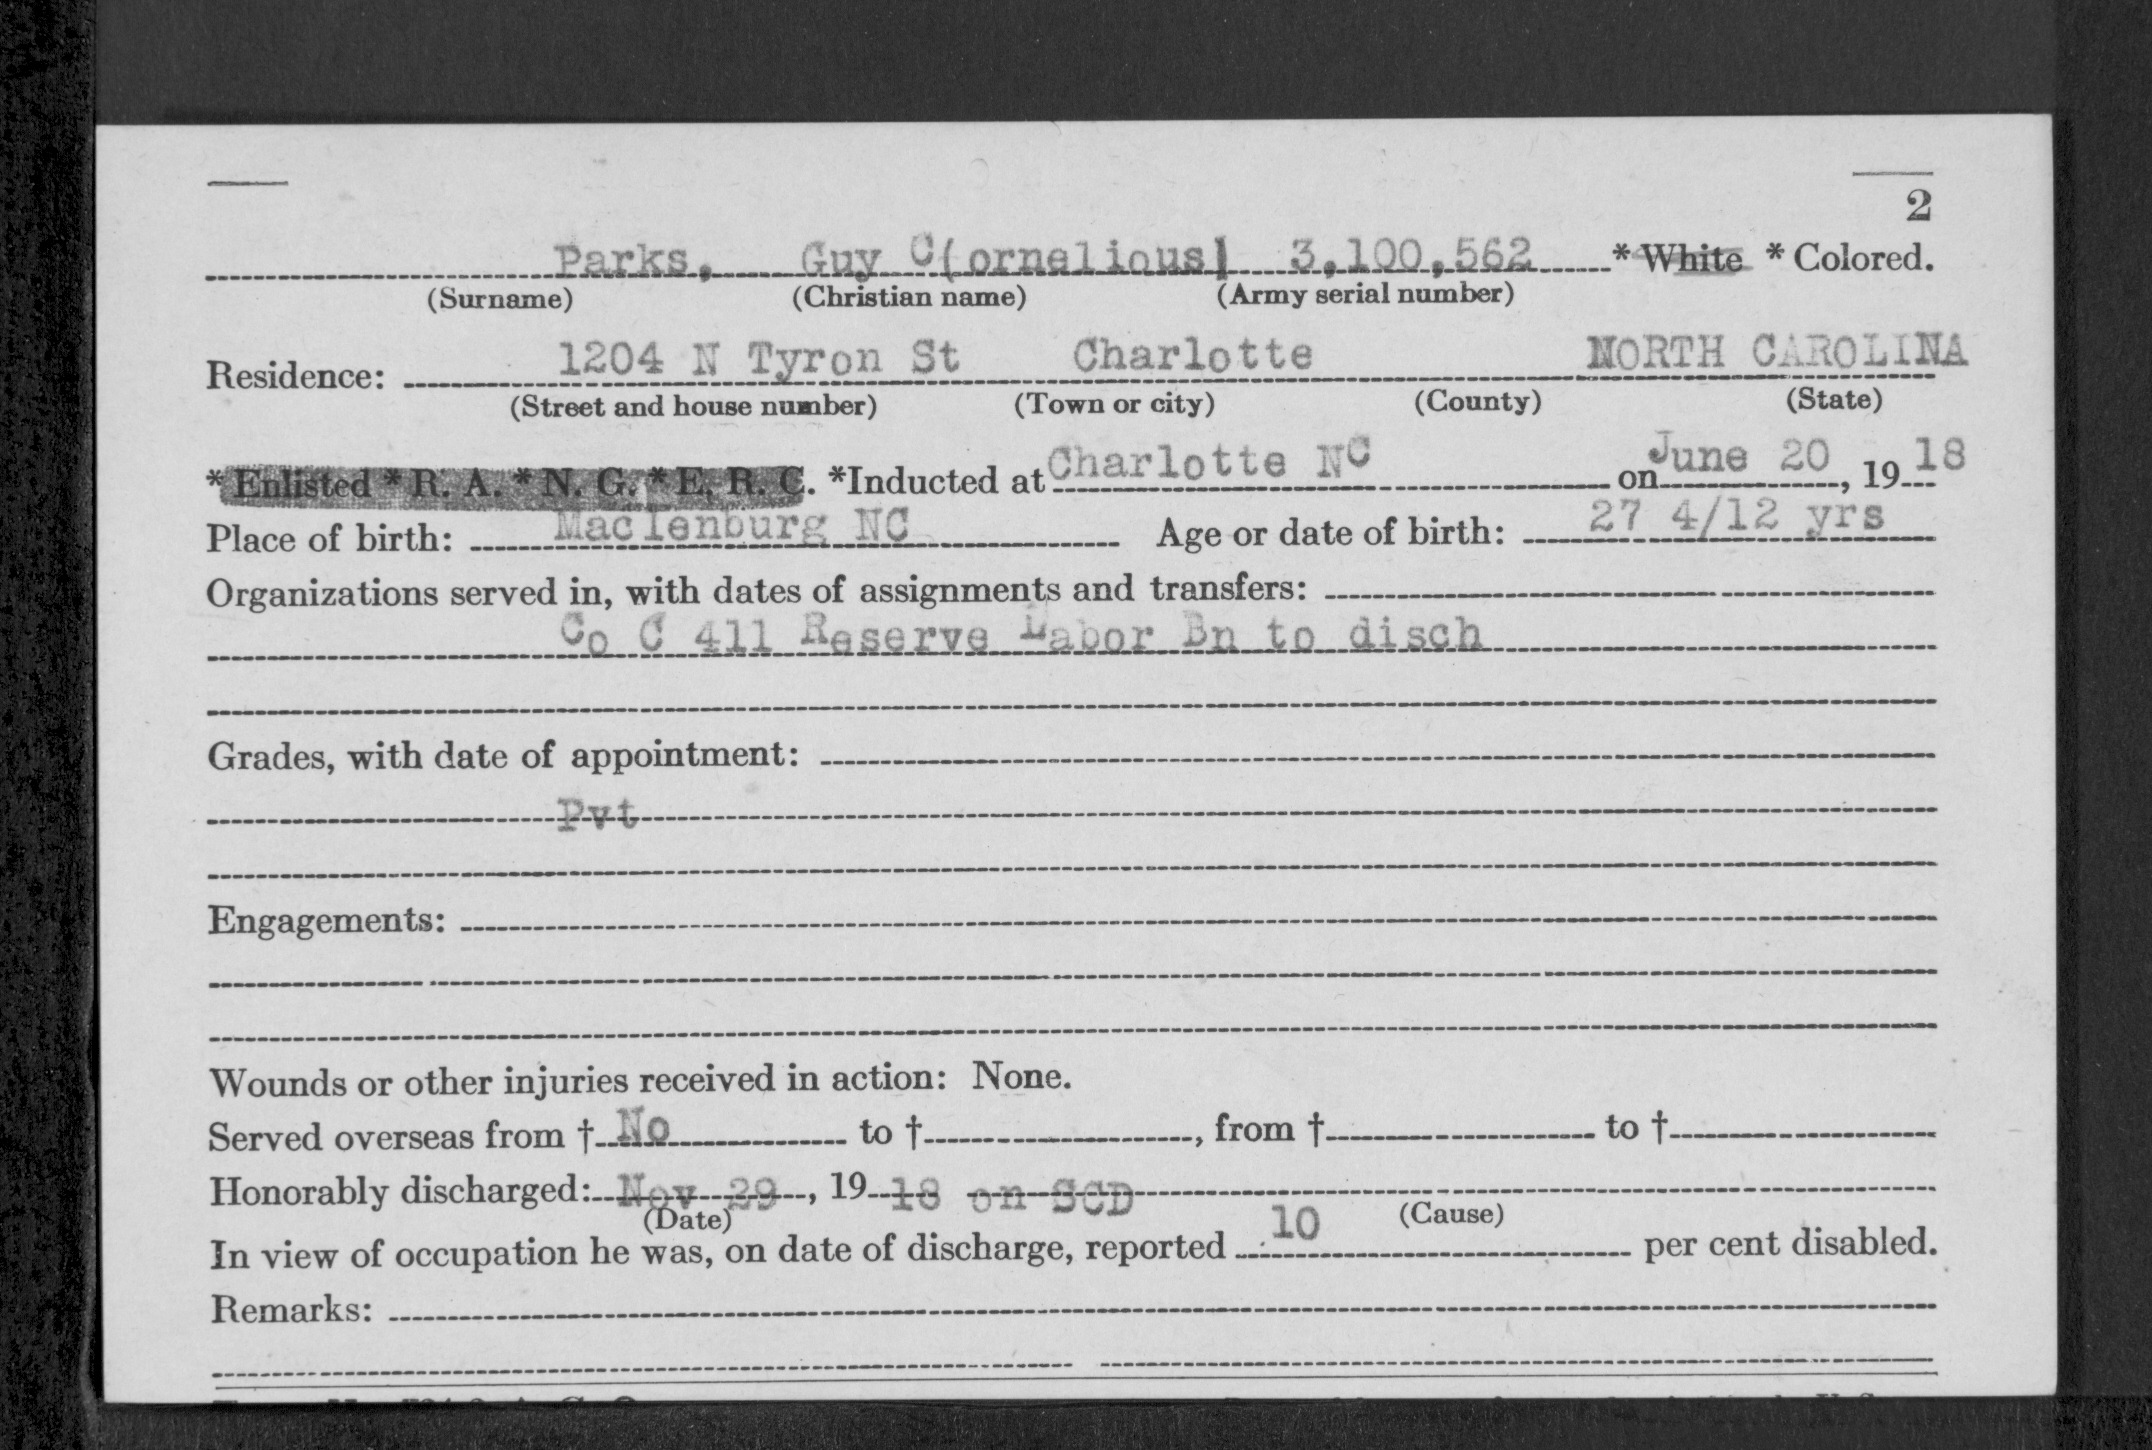 2
Parks, Guy C(ornelious) 3,100,562 * White * Colored.
(Surname) (Christian name) (Army serial number)
Residence: 1204 N Tyron St Charlotte NORTH CAROLINA
(Street and house number) (Town or city) (County) (State)
* Enlisted * R. A. * N. G. * E. R. C. *Inducted at Charlotte NC on June 20, 1918
Place of birth: Maclenburg NC Age or date of birth: 27 4/12 yrs
Organizations served in, with dates of assignments and transfers:
Co C 411 Reserve Labor Bn to disch
Grades, with date of appointment:
Pvt
Engagements:
Wounds or other injuries received in action: None.
Served overseas from † No to †, from † to †
Honorably discharged: Nov 29, 19 18 on SCD
(Date) (Cause)
In view of occupation he was, on date of discharge, reported 10 per cent disabled.
Remarks: